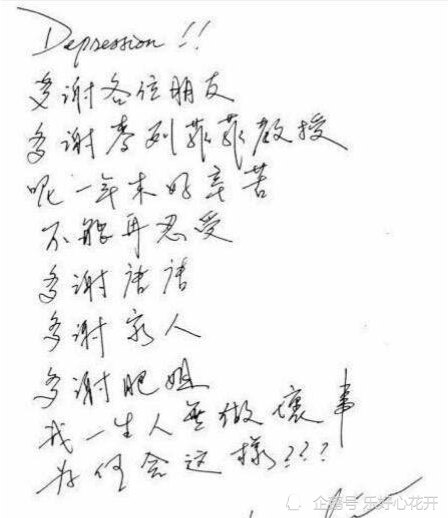 Depression!!
多谢各位朋友
多谢麦列菲菲教授
呢一年来好辛苦
不能再忍受
多谢唐唐
多谢家人
多谢肥姐
我一生人無做壞事
为何会这樣???
企鹅号 乐好心花开